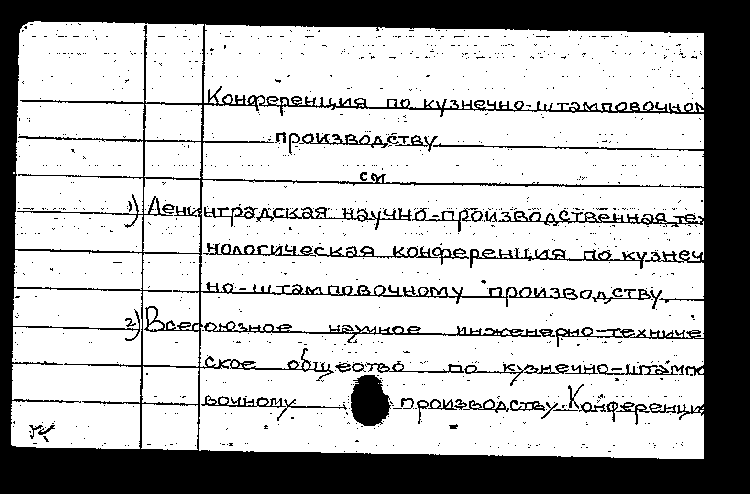 Конференция по кузнечно-штамповочном
производству
см
1) Ленинградская научно-производственная тех
нологическая конференция по кузнеч
но-штамповочному производству.
2) Всесоюзное научное инженерно-техниче
ское общество по кузнечно-штампо
вочному производству. Конференци